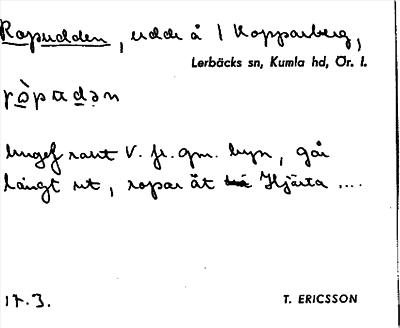 Rapudden, udde å 1 Kopparberg,
Lerbäcks sn, Kumla hd, Ör. l.
ungef rant V. fr. gm. byn, går
långt ut, ropar åt Hjärta ....
17.3.
T. ERICSSON